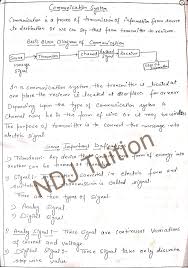 Communication System
Communication is a process of transmission of information from source
to destination or we can say that from transmitter to receiver.
Basic Block Diagram of Communication
Source Channel Receiver
message signal
Transmitter
In a communication system the transmitter is located at
one place the receiver is located at the place
Depending upon the type of Communication system a
Channel may be in the form of wire or it may be wireless
The purpose of transmitter is to convert the message into
electric signal.
Some Important Definitions
of energy into
2) Signal:- electric form and
transmission is called signal
There are two types of signal
1) Analog signal
2) Digital signal
1) Analog Signal:- These signal are continuous variations
of current and voltage
2) Digital Signal:- These signal take only discrete
step wise value
NDJ Tuition